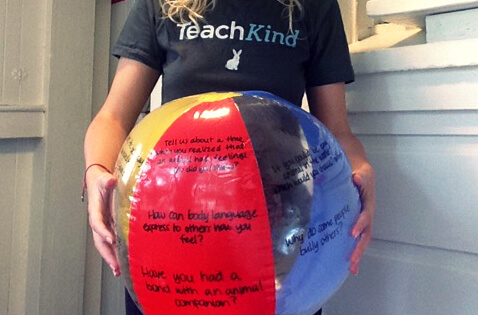 TeachKind
Tell us about a time
that you realized that
an animal has feelings
How can body language
express to others how you
feel?
Have you had a
bond with an animal
companion?
Why do some people
bully others?